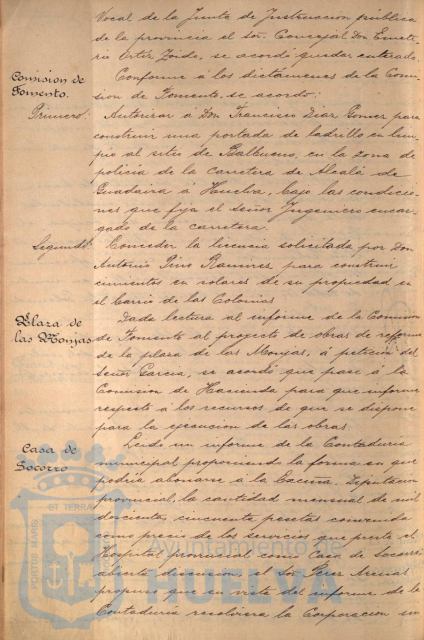 Vocal de la Junta de Instrucción pública
de la provincia el señor Concejal Don Emete-
rio Ortiz Zoide, se acordó quedar enterado.
Comision de
Fomento.
Conforme á los dictámenes de la Comi-
sion de Fomento, se acordó:
Primero:
Autorizar á Don Francisco Diaz Gomez para
construir una portada de ladrillo en lim-
pio al sitio de Balbueno, en la zona de
policia de la carretera de Alcalá de
Guadaira á Huelva, bajo las condicio-
nes que fija el señor Ingeniero encar-
gado de la carretera.
Segundo:
Conceder la licencia solicitada por Don
Antonio Pino Ramirez para construir
cimientos en solares de su propiedad en
el barrio de las Colonias
Plaza de
las Monjas
Dada lectura al informe de la Comision
de Fomento al proyecto de obras de reforma
de la plaza de las Monjas, á petición del
Señor Garcia, se acordó que pase á la
Comision de Hacienda para que informe
respecto á los recursos de que se dispone
para la ejecucion de las obras
Casa de
Socorro
Leido un informe de la Contaduría
municipal proponiendo la forma en que
podria abonarse á la Excma. Diputacion
provincial, la cantidad mensual de mil
doscientas cincuenta pesetas convenida
como precio de los servicios que presta el
Hospital provincial como Casa de Socorro
abierta discusion, el Sor Perez Arenas
propuso que en vista del informe de la
Contaduría resolviera la Corporacion sin
PORTUS MARIS
ET TERRAE
Ayuntamiento de
HUELVA